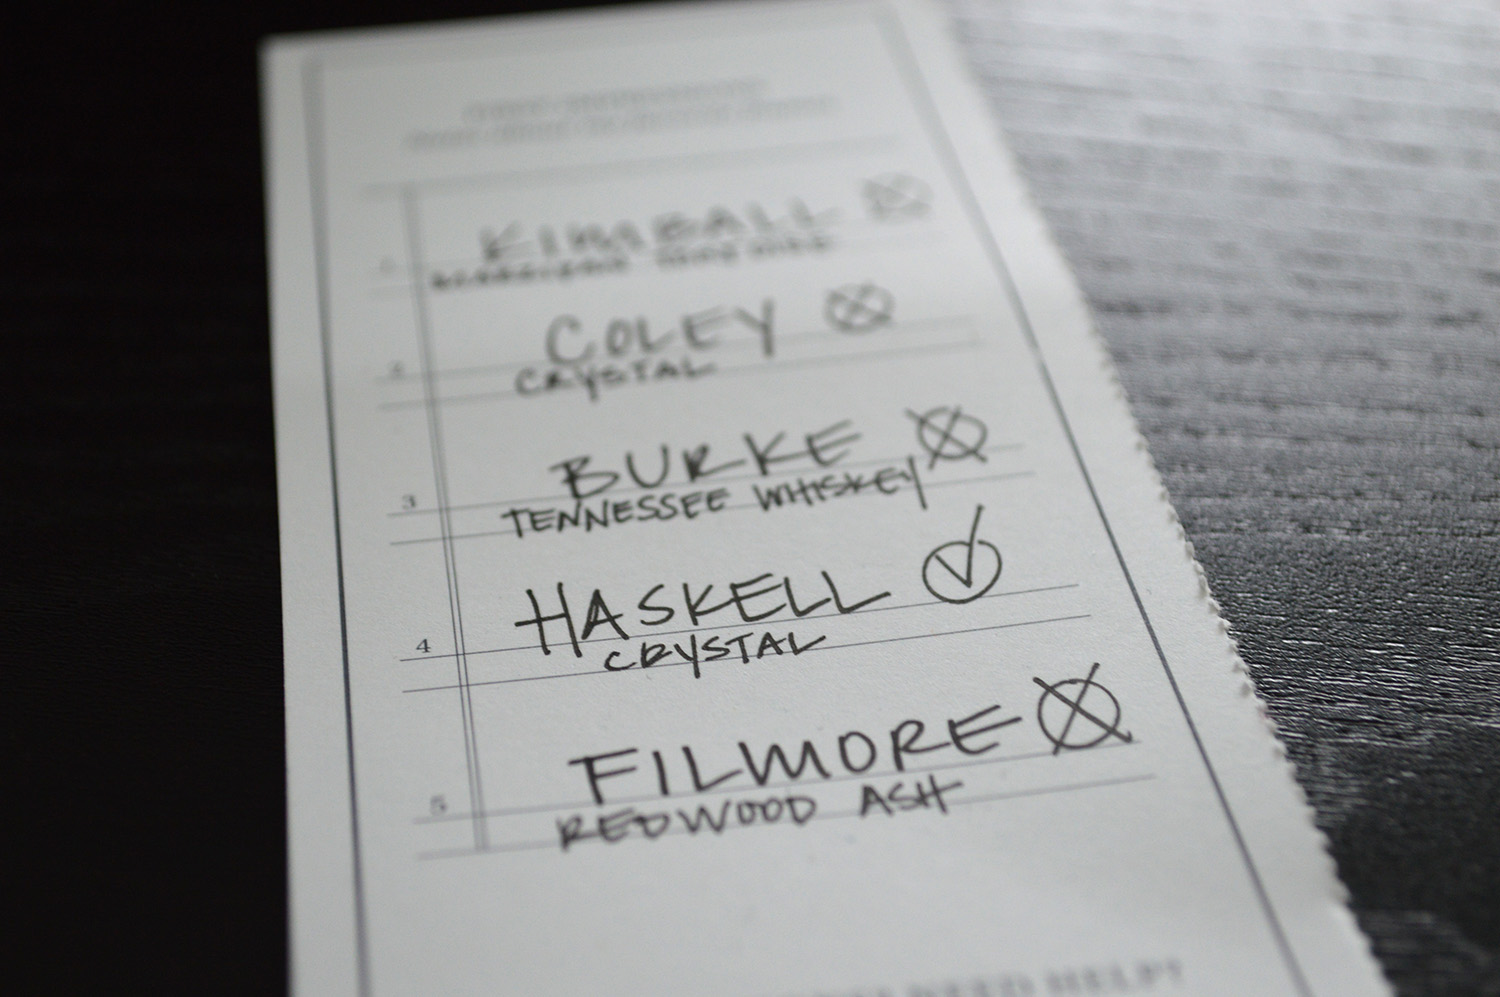 KIMBALL
COLEY
2
CRYSTAL
BURKE
3
TENNESSEE WHISKEY
HASKELL
4
CRYSTAL
FILMORE
5
REDWOOD ASH
NEED HELP?